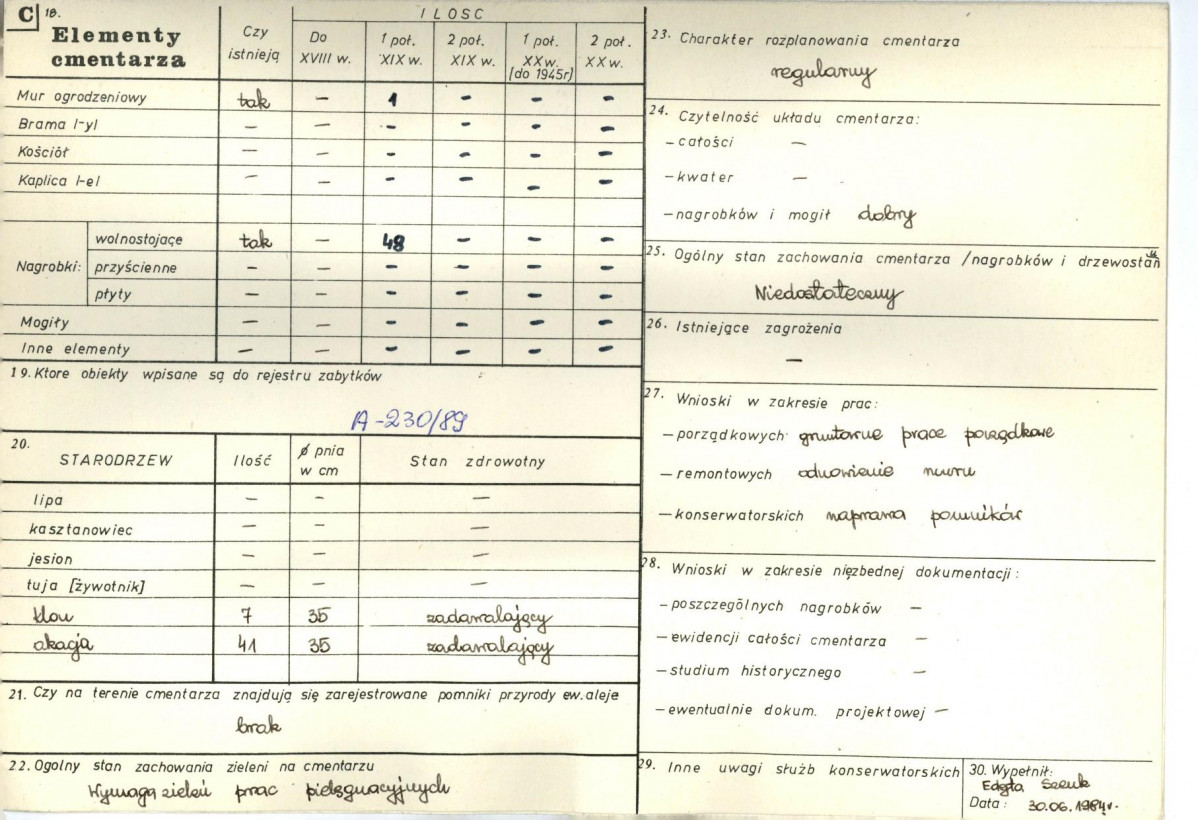 C 18.
Elementy cmentarza
Czy istnieją
ILOSC
Do XVIII w.
1 poł. XIX w.
2 poł. XIX w.
1 poł. XX w. [do 1945r]
2 poł. XX w.
Mur ogrodzeniowy tak – 1 – – –
Brama /-y/ – – – – – –
Kościół – – – – – –
Kaplica /-e/ – – – – – –
Nagrobki: wolnostojące tak – 48 – – –
przyścienne – – – – – –
płyty – – – – – –
Mogiły – – – – – –
Inne elementy – – – – – –
19. Ktore obiekty wpisane są do rejestru zabytków
A-230/89
20. STARODRZEW Ilość ø pnia w cm Stan zdrowotny
lipa – – –
kasztanowiec – – –
jesion – – –
tuja [żywotnik] – – –
klon 7 35 zadawalający
akacja 41 35 zadawalający
21. Czy na terenie cmentarza znajdują się zarejestrowane pomniki przyrody ew. aleje
brak
22. Ogolny stan zachowania zieleni na cmentarzu
Wymaga zieleń prac pielęgnacyjnych
23. Charakter rozplanowania cmentarza
regularny
24. Czytelność układu cmentarza:
– całości –
– kwater –
– nagrobków i mogił dobry
25. Ogólny stan zachowania cmentarza /nagrobków i drzewostan
Niedostateczny
26. Istniejące zagrożenia
–
27. Wnioski w zakresie prac:
– porządkowych gruntowne prace porządkowe
– remontowych odnowienie muru
– konserwatorskich naprawa pomników
28. Wnioski w zakresie niezbędnej dokumentacji:
– poszczególnych nagrobków –
– ewidencji całości cmentarza –
– studium historycznego –
– ewentualnie dokum. projektowej –
29. Inne uwagi służb konserwatorskich
30. Wypełnił:
Edyta
Data: 30.06.1984r.